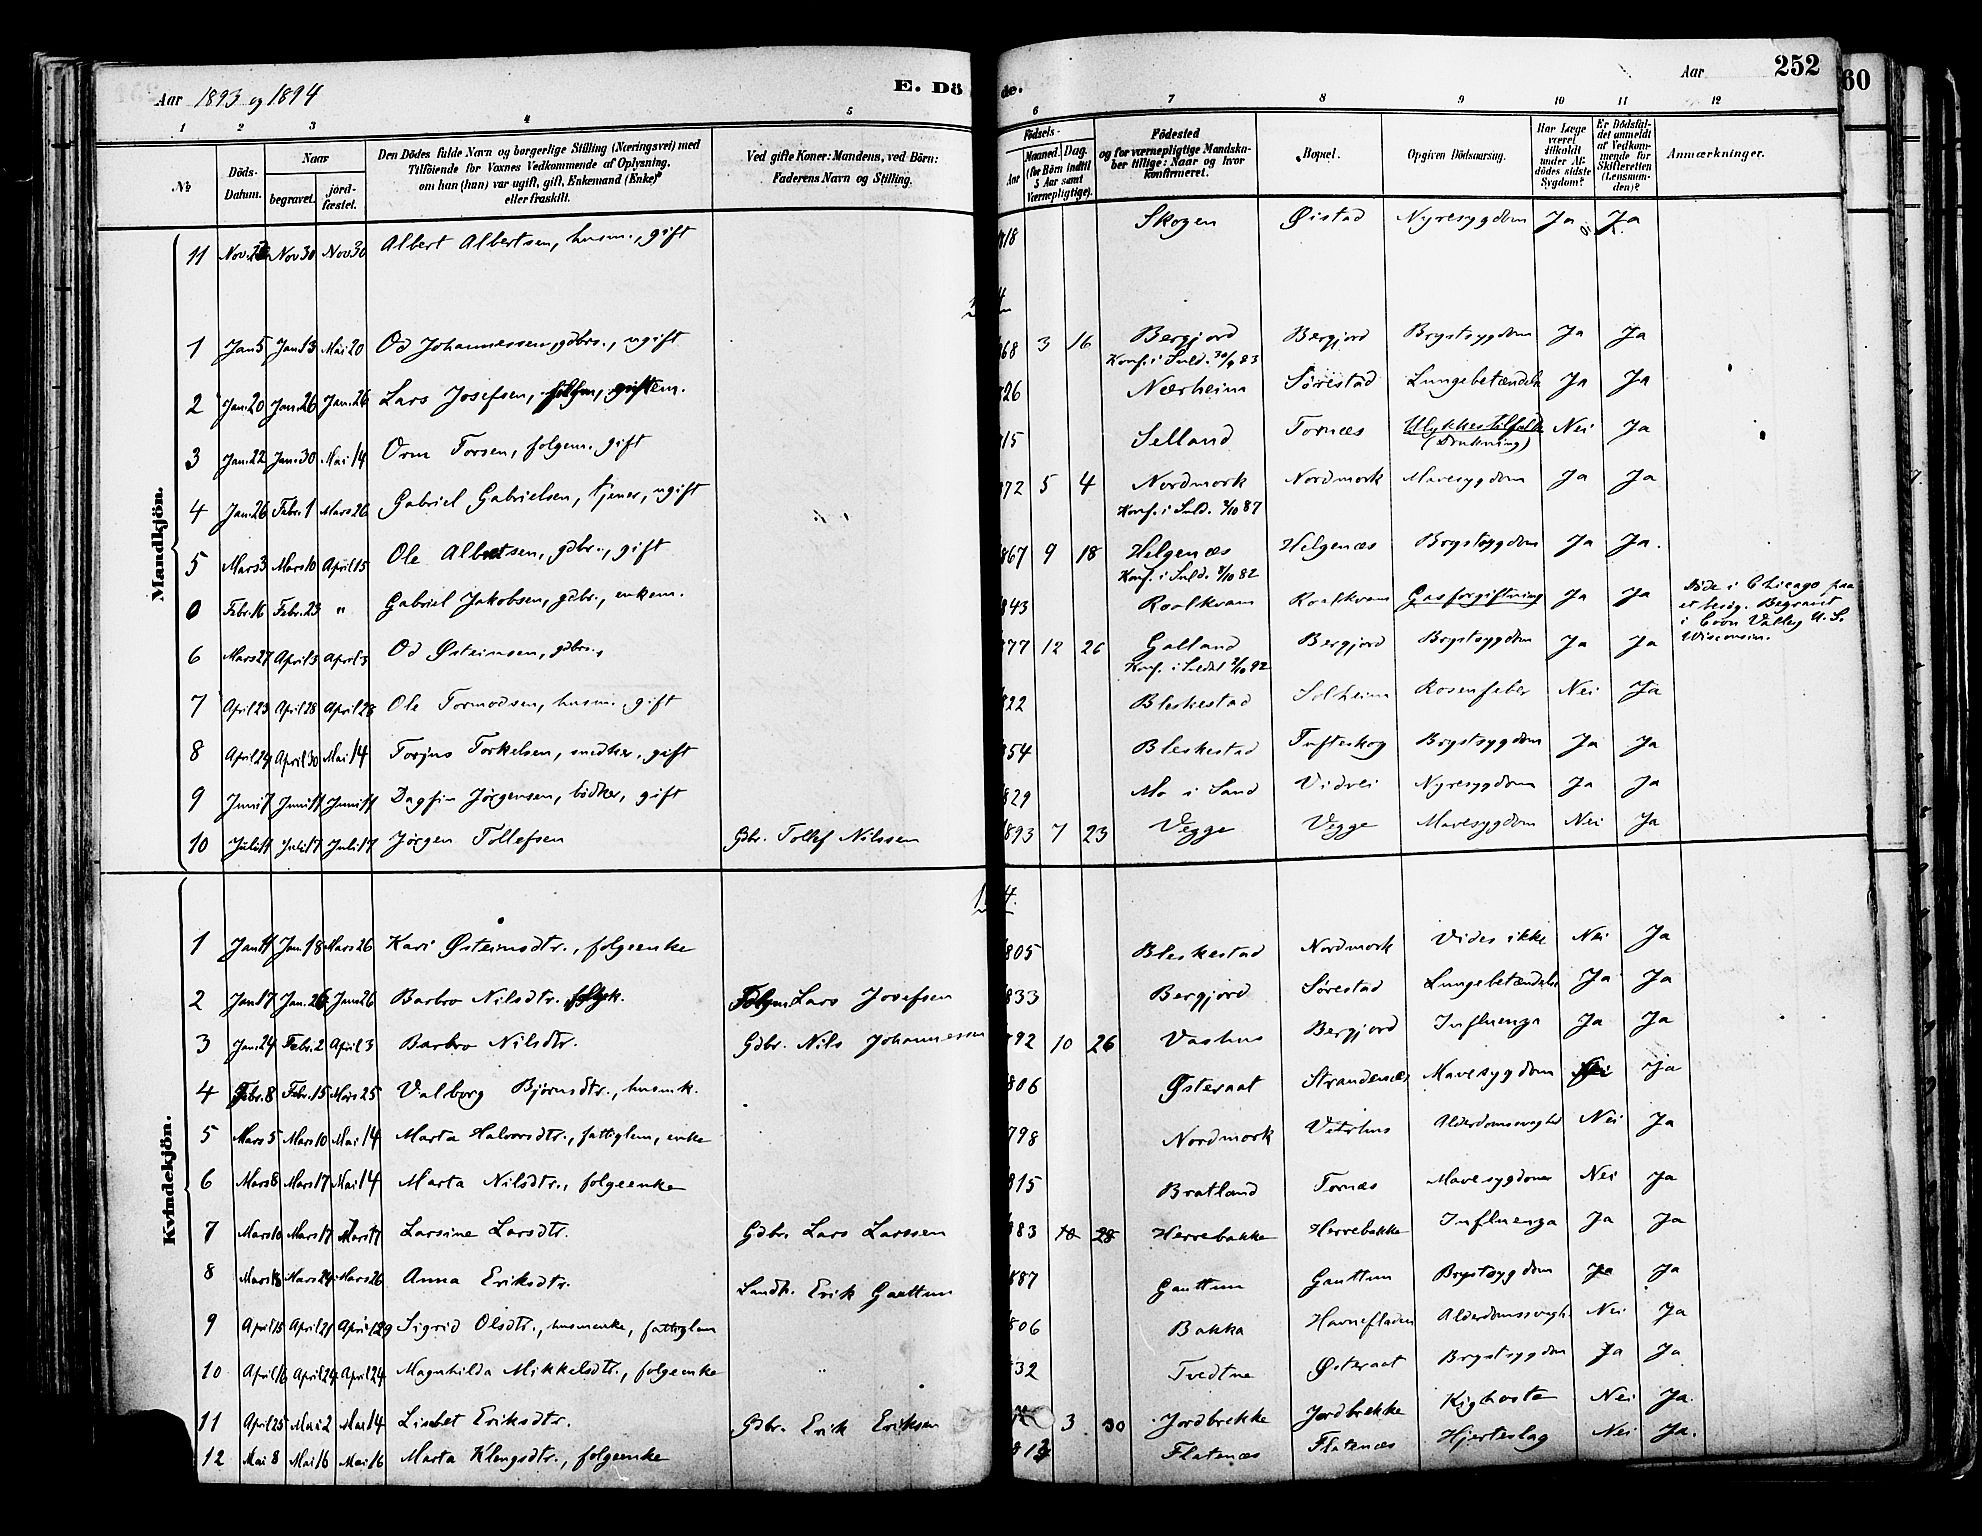 Aar 1893 og 1894
E. Dö
de.
Aar
252
60
1 2 3 4 5 6 7 8 9 10 11 12
No
Döds-Datum.
Naar
begravet.
jord-fæstet.
Den Dödes fulde Navn og borgerlige Stilling (Næringsvei) med
Tilföiende for Voxnes Vedkommende af Oplysning,
om han (hun) var ugift, gift, Enkemand (Enke)
eller fraskilt.
Ved gifte Koner: Mandens, ved Börn:
Faderens Navn og Stilling.
Födsels-
Aar
Maaned. Dag.
(for Börn indtil
5 Aar samt
Værnepligtige).
Födested
og for værnepligtige Mandska-
ber tillige: Naar og hvor
konfirmeret.
Bopæl.
Opgiven Dödsaarsag.
Har Læge
været
tilkaldt
under Af-
dödes sidste
Sygdom?
Er Dödsfal-
det anmeldt
af Vedkom-
mende for
Skifteretten
(Lensman-
den)?
Anmærkninger.
Mandkjön.
11 Nov. Nov 30 Nov 30 Albert Albertsen, husm., gift 818 Skogen Øistad Nyresygdom Ja Ja
1 Jan 5 Jan 13 Mai 20 Od Johannessen, gdbrs., ugift 868 3 16 Bergjord Bergjord Brystsygdom Ja Ja
Konf. i Suld. 30/9 83
2 Jan. 20 Jan. 26 Jan. 26 Lars Josefsen, 826 Nærheim Sørestad Lungebetændelse Ja Ja
3 Jan. 22 Jan. 30 Mai 14 Orm Torsen, folgem. gift 815 Selland Tornæs Ulykkestilfælde Nei Ja
(Drukning)
4 Jan. 26 Febr. 1 Mars 26 Gabriel Gabrielsen, tjener, ugift 872 5 4 Nordmork Nordmork Mavesygdom Ja Ja
Konf. i Suld. 2/10 87
5 Mars 3 Mars 10 April 15 Ole Albertsen, gdbr., gift 867 9 18 Helgenæs Helgenæs Brystsygdom Ja Ja.
Konf. i Suld. 8/10 82
0 Febr. 16 Febr. 23 " Gabriel Jakobsen, gdbr., enkem. 843 Roalkvam Roalkvam Gasforgiftning Ja Ja Døde i Chicago paa
et besøg. Begravet
i Coon Valley U.S.
Wisconsin.
6 Mars 27 April 3 April 3 Od Østeinsen, gdbrs., 877 12 26 Galland Bergjord Brystsygdom Ja Ja
Konf. i Suldal 2/10 92
7 April 23 April 28 April 28 Ole Tormodsen, husm., gift 822 Bleskestad Solheim Rosenfeber Nei Ja
8 April 24 April 30 Mai 14 Torjus Torkelsen, snedker, gift 854 Bleskestad Tufteskog Brystsygdom Ja Ja
9 Juni 7 Juni 17 Juni 17 Dagfin Jørgensen, bødker, gift 829 Mo i Sand Vidvei Nyresygdom Ja Ja
10 Juli 11 Juli 17 Juli 17 Jørgen Tollefsen Gdbr. Tollef Nilssen 1893 7 23 Vegge Vegge Mavesygdom Nei Ja
Kvindekjön.
1 Jan 11 Jan. 18 Mars 26 Kari Østeinsdtr., folgeenke 805 Bleskestad Nordmork Vides ikke Nei Ja
2 Jan 17 Jan. 26 Jan 26 Barbro Nilsdtr. Folgm Lars Josefsen 833 Bergjord Sørestad Lungebetændelse Ja Ja
3 Jan. 24 Febr. 2 April 3 Barbro Nilsdtr. Gdbr. Nils Johannessen 892 10 26 Vashus Bergjord Influenza Ja Ja
4 Febr. 8 Febr. 15 Mars 25 Valborg Bjørnsdtr., husmk. 806 Østeraat Strandenæs Mavesygdom Nei Ja
5 Mars 5 Mars 10 Mai 14 Marta Halvorsdtr., fattiglem, enke 798 Nordmork Vetrhus Alderdomssvaghed Nei Ja
6 Mars 8 Mars 17 Mai 14 Marta Nilsdtr., folgeenke 815 Bratland Tornæs Mavesygdom Nei Ja
7 Mars 10 Mars 17 Mars 17 Larsine Larsdtr. Gdbr. Lars Larssen 883 10 28 Herrebakke Herrebakke Influenza Ja Ja
8 Mars 18 Mars 24 Mars 26 Anna Eriksdtr. Landh. Erik Gauttun 887 Gauttun Gauttun Brystsygdom Ja Ja
9 April 15 April 21 April 29 Sigrid Olsdtr., husmenke, fattiglem 806 Bakka Havrefladen Alderdomssvagh. Nei Ja
10 April 16 April 24 April 24 Magnhilda Mikkelsdtr., folgeenke " 832 Tvedtne Østeraat Brystsygdom Ja Ja
11 April 25 Mai 2 Mai 14 Lisbet Eriksdtr. Gdbr. Erik Eriksen 3 30 Jordbrekke Jordbrekke Kighoste Nei Ja.
12 Mai 8 Mai 16 Mai 16 Marta Klengsdtr., folgeenke Flatenæs Flatenæs Hjerteslag Nei Ja.